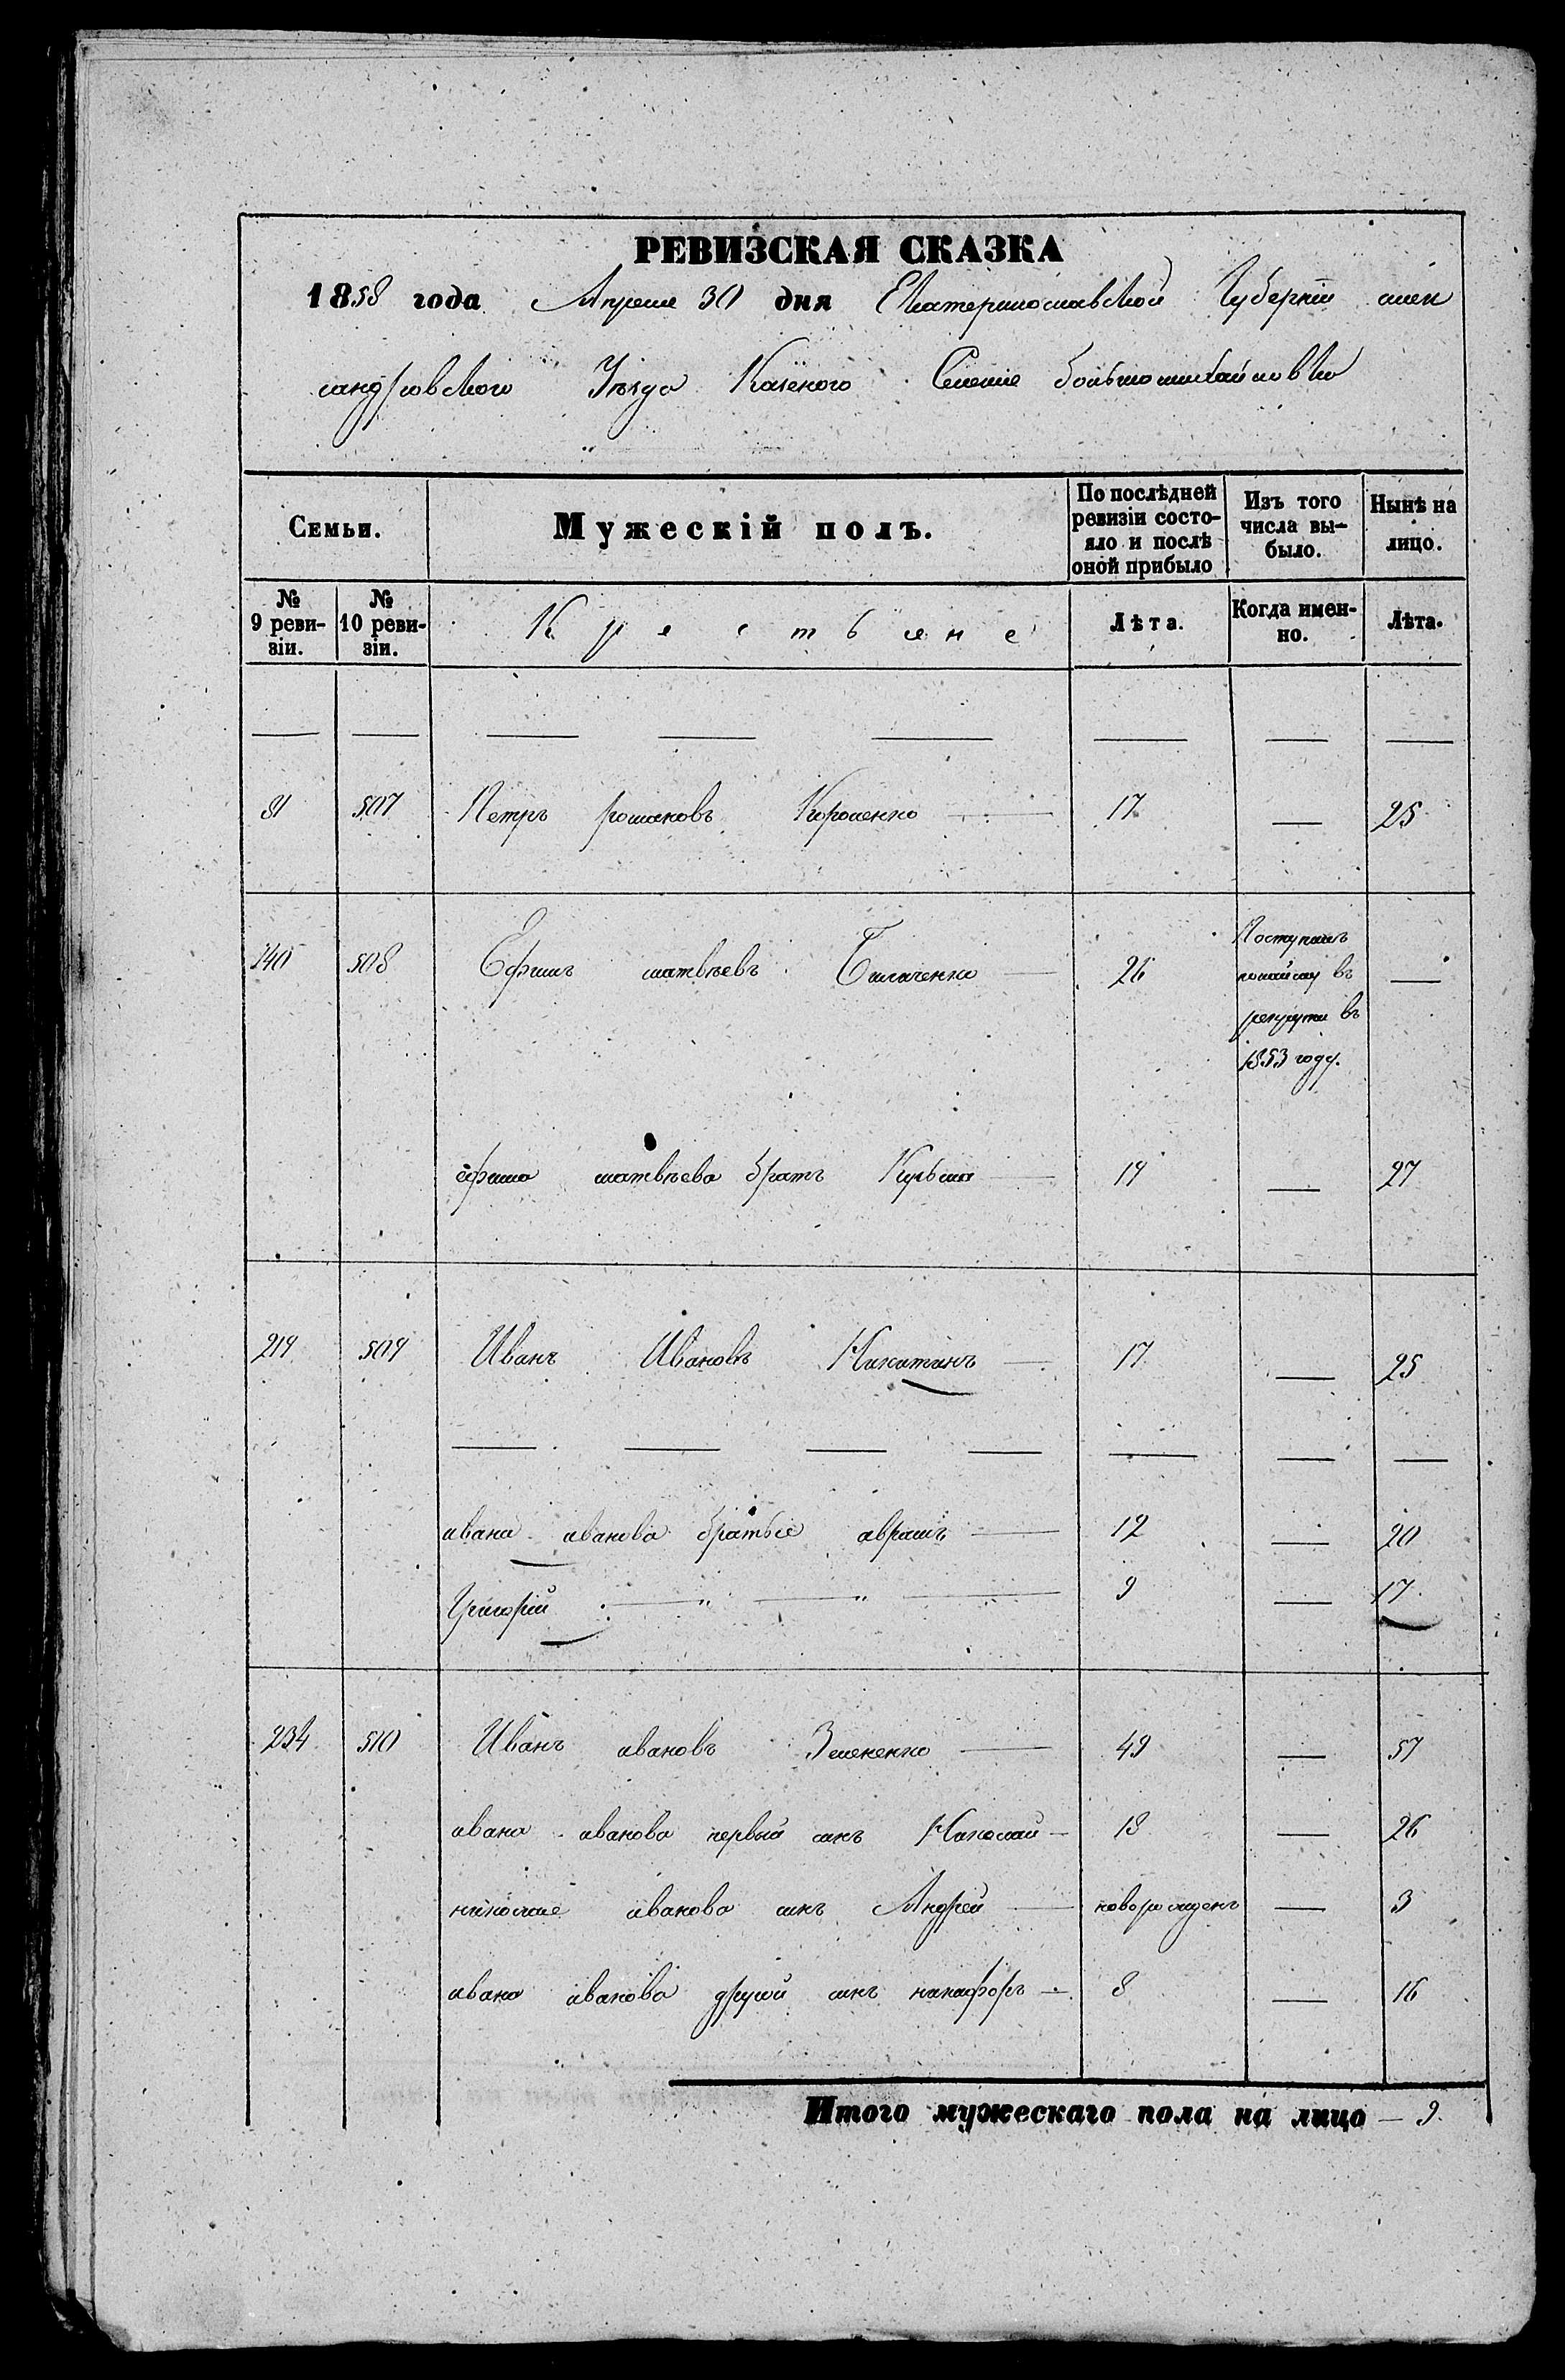 РЕВИЗСКАЯ СКАЗКА
1858 года Апреля 30 дня Екатеринославской Губернiи алек
сандровского Уѣзда Казеного Селенiе большомихайловки
Семьи. Мужескiй полъ. По послѣдней ревизiи состояло и послѣ оной прибыло Изъ того числа вы-было. Нынѣ на лицо.
№ 9 реви-зiи. № 10 реви-зiи. Крествяне Лѣта. Когда имен-но. Лѣта.
81 507 Петръ романовъ Короленко 17 — 25
140 508 Ефимъ матвѣевъ Биличенко 26 Поступилъ
в
рекруты въ
1853 году. —
ефима матвѣева братъ Кузьма 19 — 27
219 509 Иванъ Ивановъ Никитинъ 17 — 25
ивана иванова братья аврамъ 12 — 20
Григорiй " " " 9 — 17
234 510 Иванъ ивановъ Зелененко 49 — 57
ивана иванова первый синъ Николай 18 — 26
николая иванова синъ Андрей новорожденъ — 3
ивана иванова другий синъ никифоръ 8 — 16
Итого мужескаго пола на лицо — 9